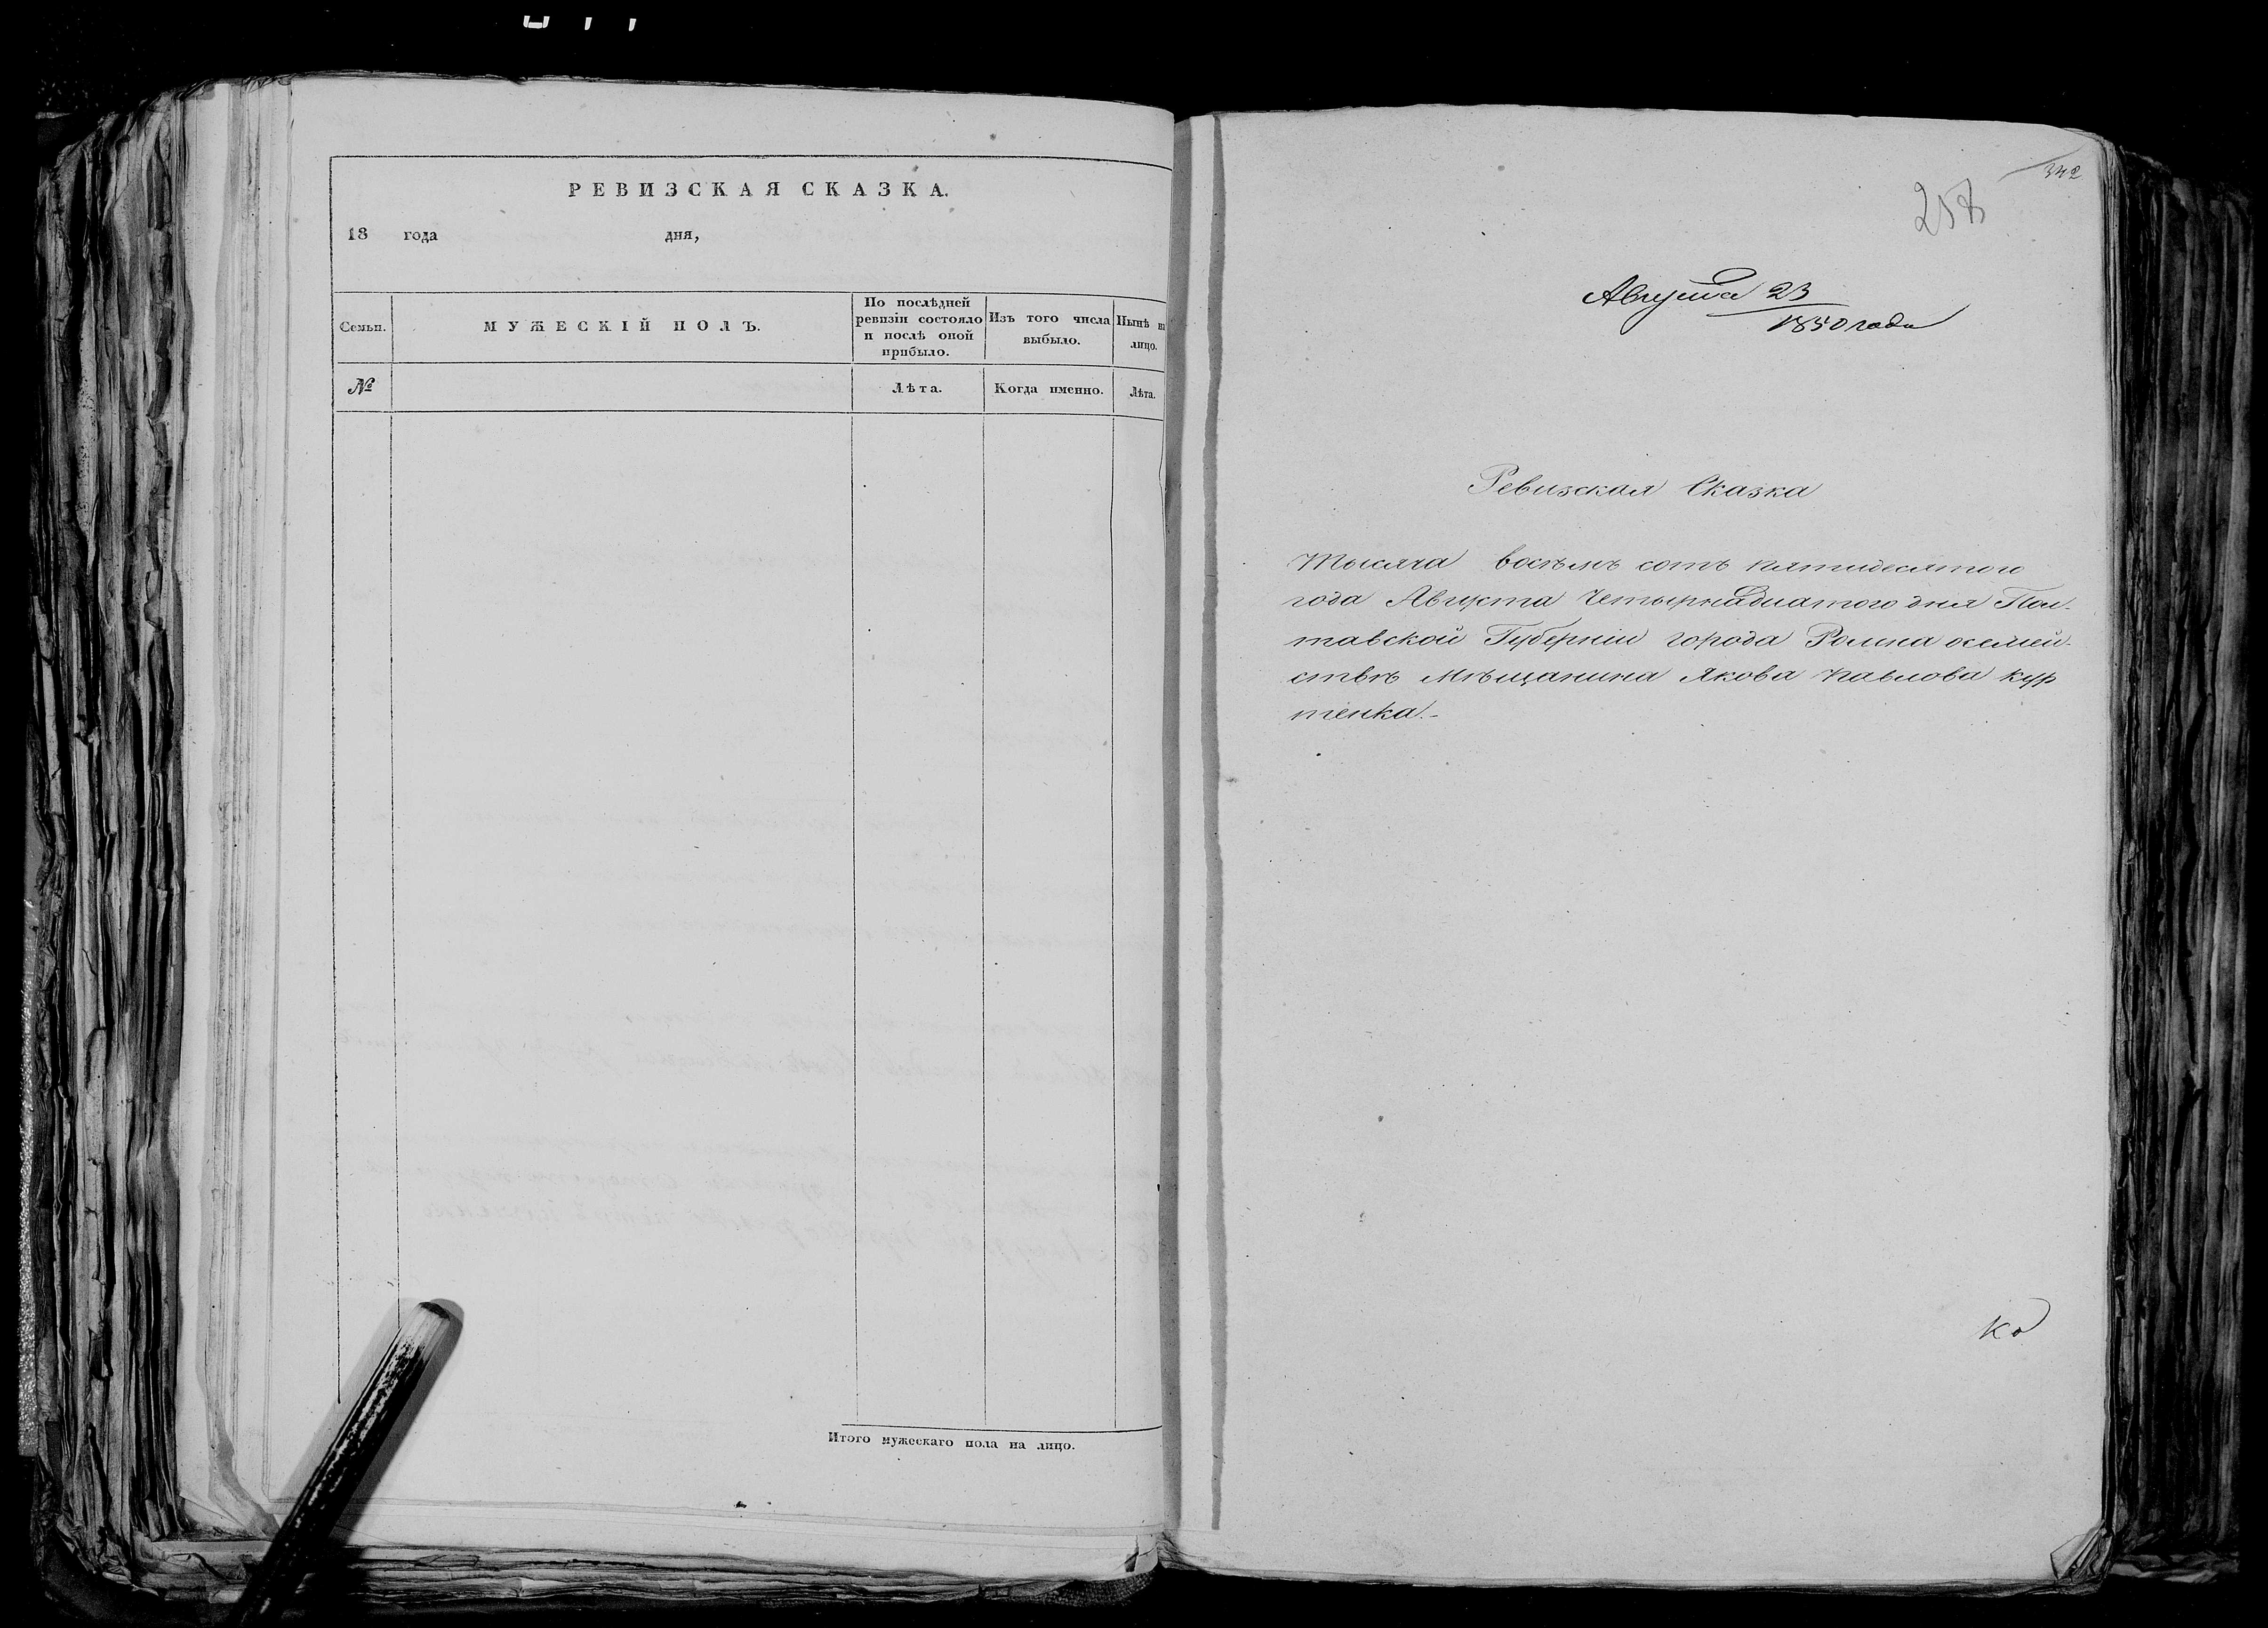 РЕВИЗСКАЯ СКАЗКА.
18 года дня,
Семьи.
МУЖЕСКІЙ ПОЛЪ.
По послѣдней
ревизіи состояло
и послѣ оной
прибыло.
Изъ того числа
выбыло.
Нынѣ на
лицо.
№
Лѣта.
Когда именно.
Лѣта.
Итого мужескаго пола на лицо.
342
258
Августа 23
1850 года
Ревизская Сказка
Тысяча восѣмъ сотъ пятидесятого
года Августа Четырнадцатого дня Пол-
тавской Губерніи города Ромна осемей-
ствѣ Мѣщанина Якова Павлова Кур
тенка.-
Ко